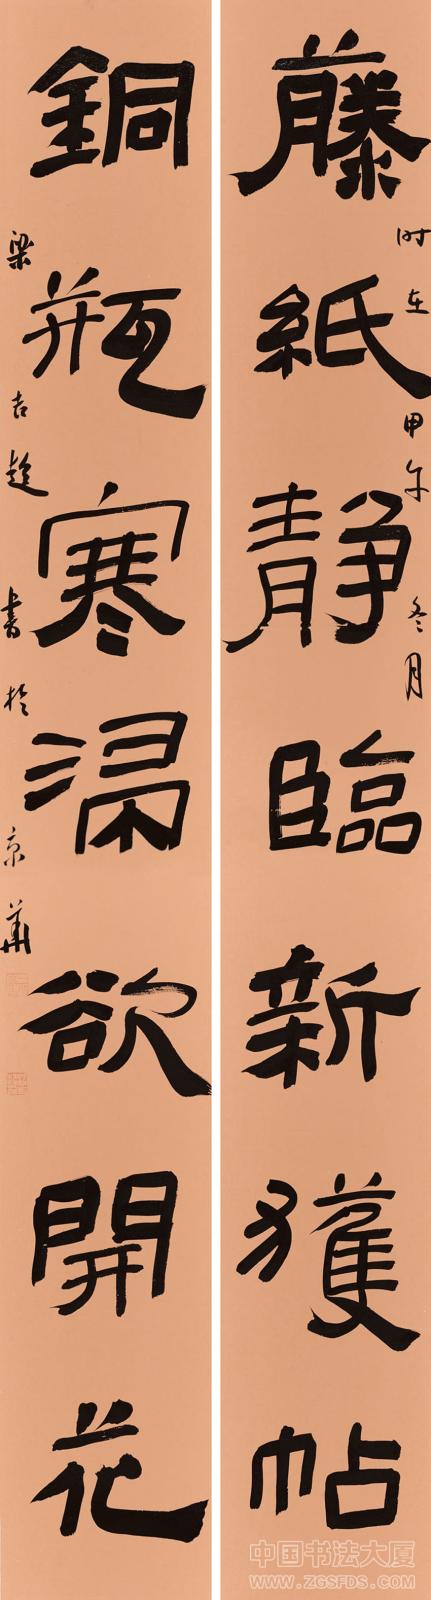 时在甲午冬月
藤紙静臨新獲帖
銅瓶寒浸欲開花
梁吉 書於京華
中国书法大厦
WWW.ZGSFDS.COM